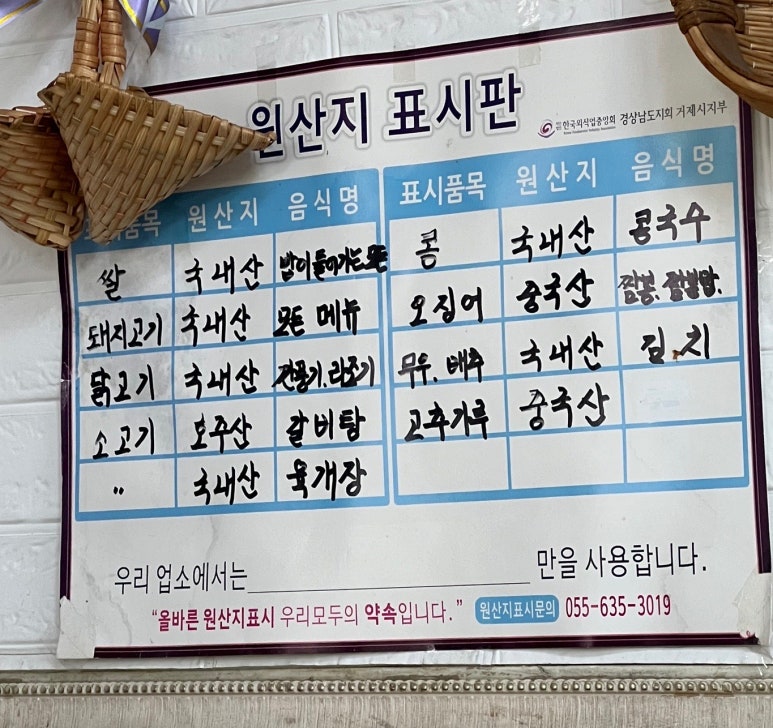 원산지 표시판
한국외식업중앙회 경상남도지회 거제시지부
품목 원산지 음식명
쌀 국내산 밥이 들어가는 모든
돼지고기 국내산 모든 메뉴
닭고기 국내산 깐풍기. 라조기
소고기 호주산 갈비탕
〃 국내산 육개장
표시품목 원산지 음식명
콩 국내산 콩국수
오징어 중국산 짬뽕. 짬뽕밥.
무우. 배추 국내산 김치
고추가루 중국산
우리 업소에서는 만을 사용합니다.
"올바른 원산지표시 우리모두의 약속입니다." 원산지표시문의 055-635-3019